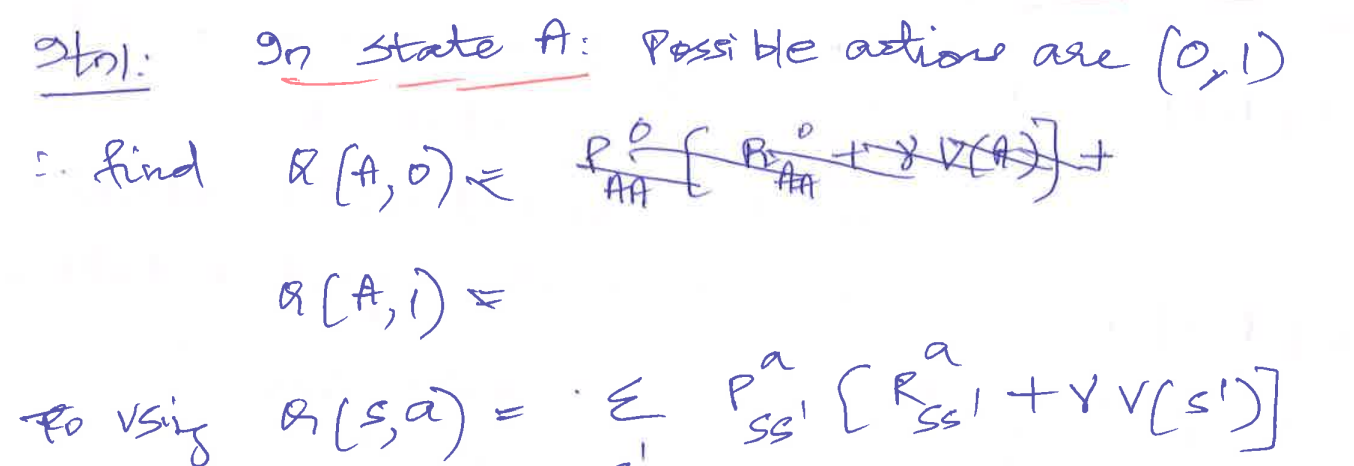 Itn1: In state A: Possible actions are (0, 1)
∴ find Q(A, 0) = P⁰_AA [ R⁰_AA + γ V(A)] +
Q(A, 1) =
using Q(s, a) = Σ_s' P^a_ss' [ R^a_ss' + γ V(s')]